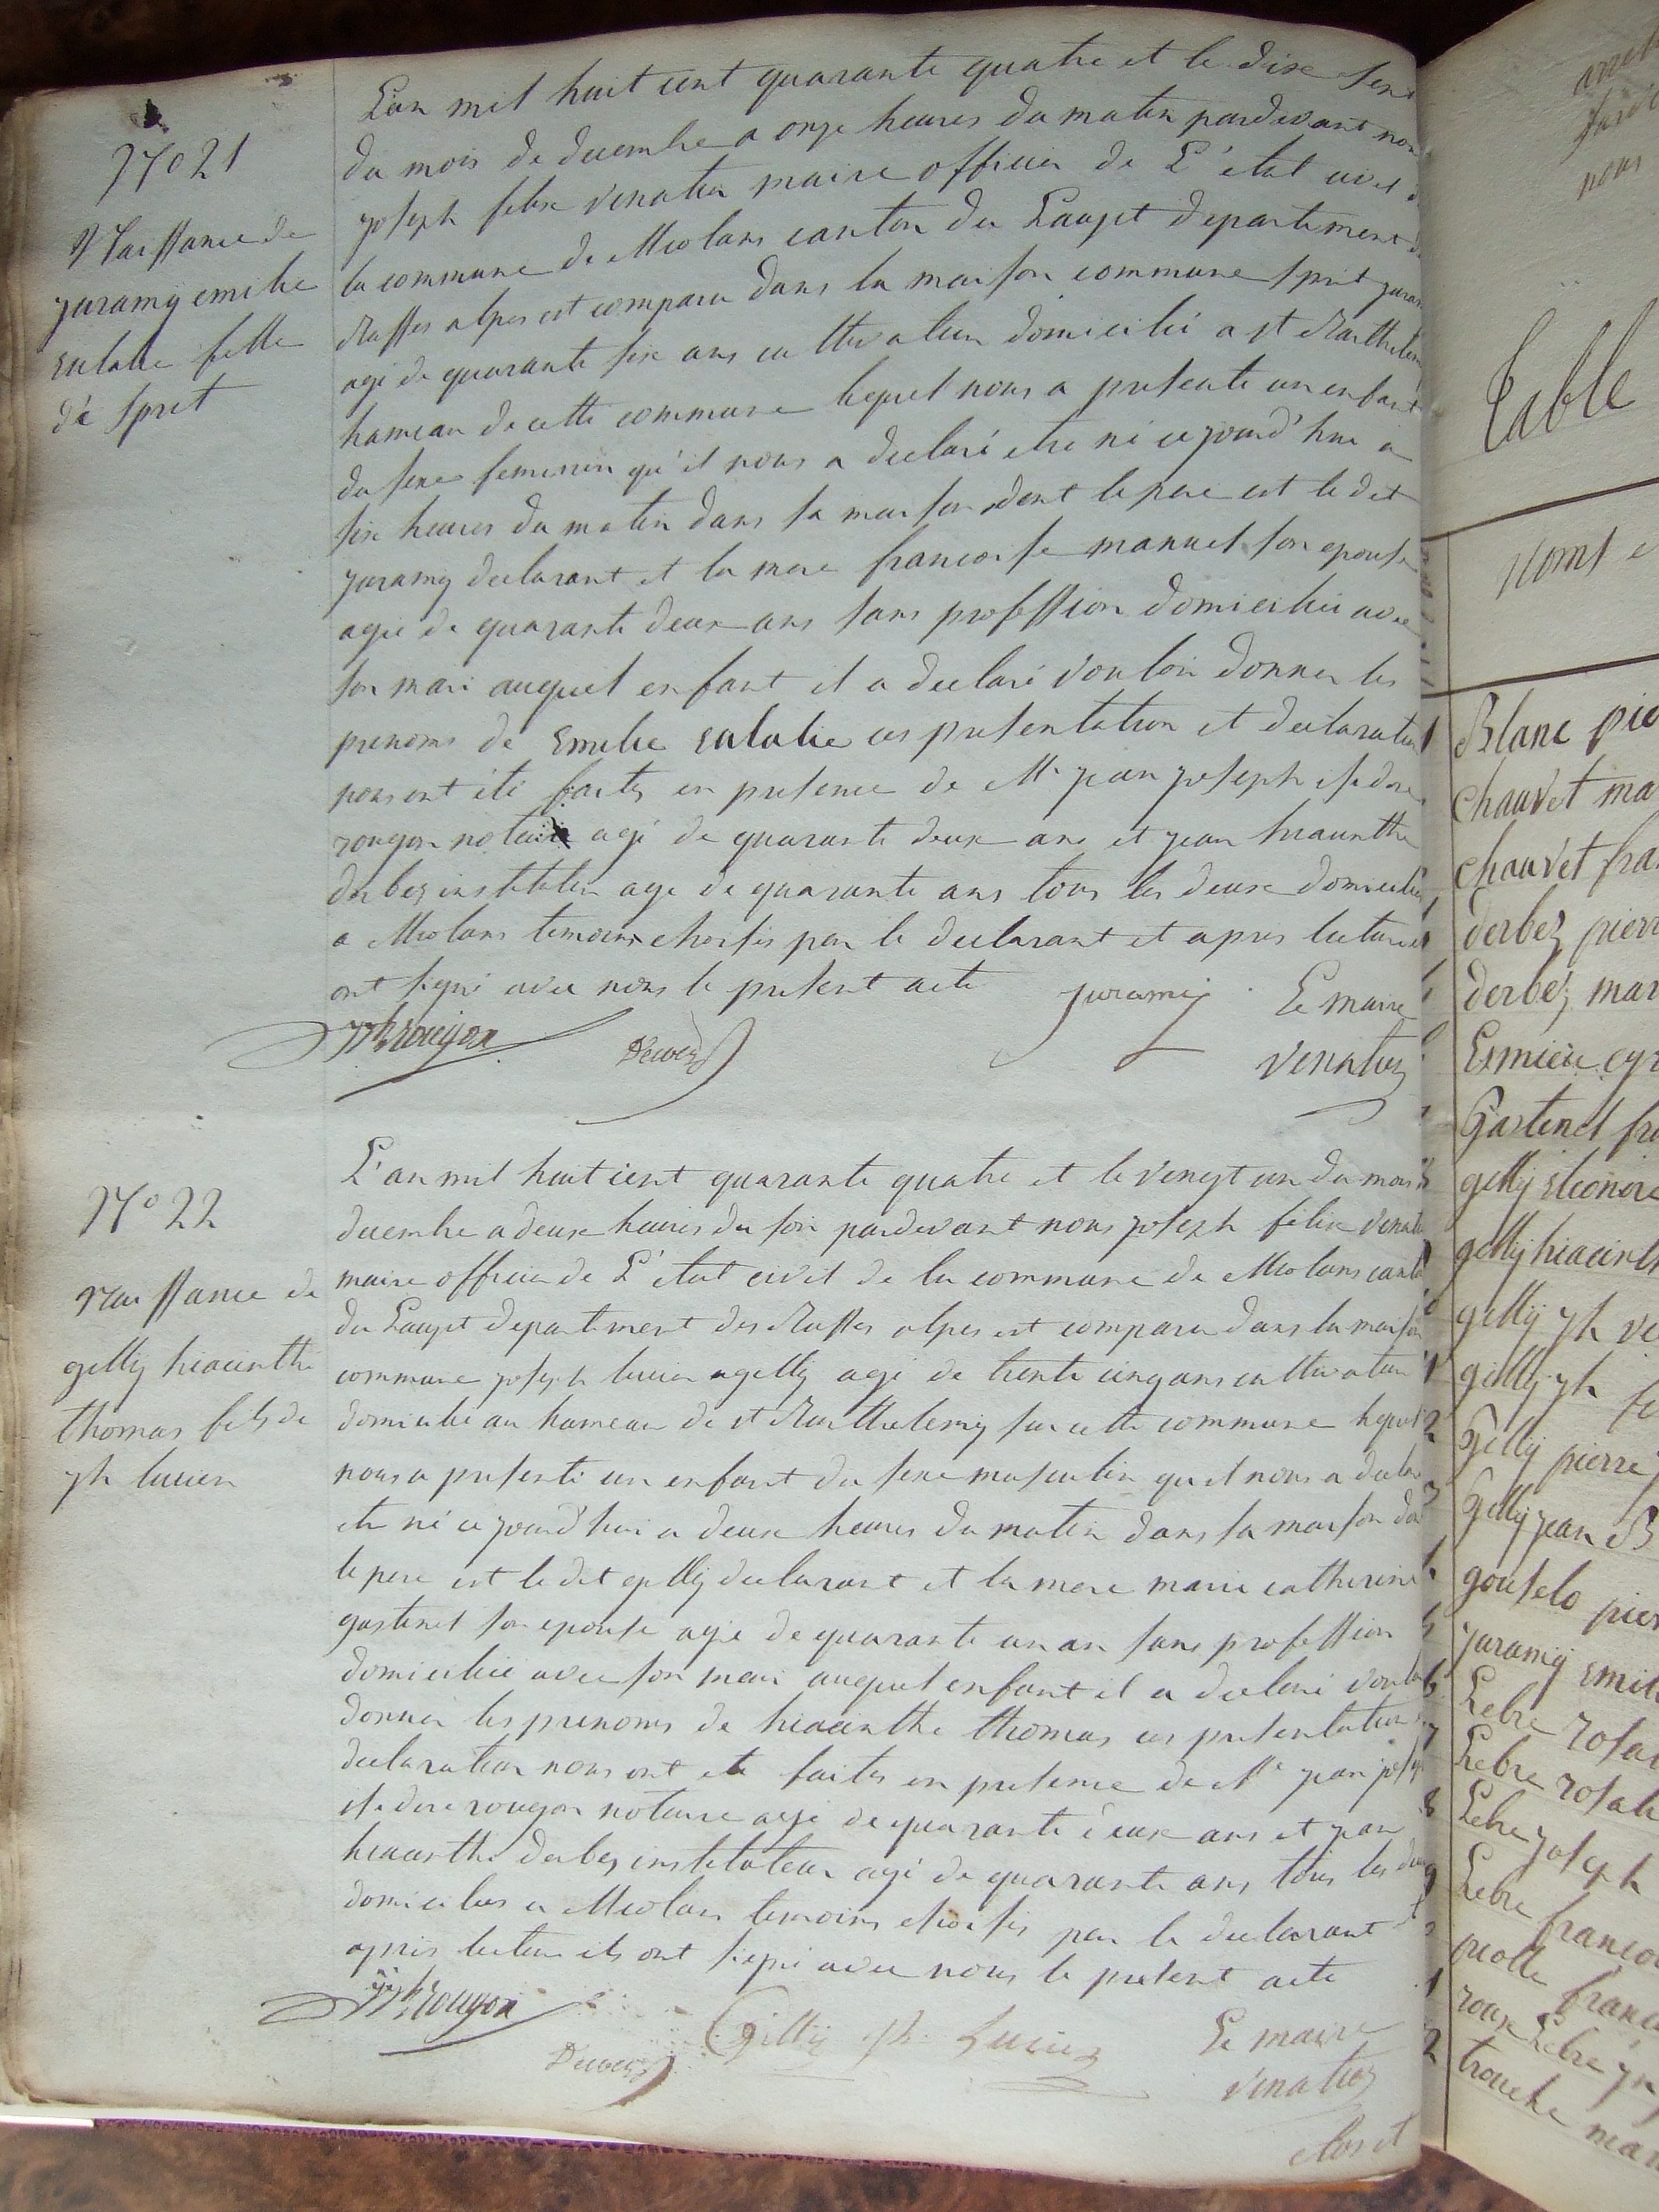 N° 21
Naissance de
juramy emilie
eulalie fille
de sprit
L'an mil huit cent quarante quatre et le dix sept
du mois de decembre a onze heures du matin pardevant nous
joseph felix venatier maire officier de L'etat civil
la commune de Meolans canton du Lauzet departement
Basses alpes est comparu dans la maison commune sprit
agé de quarante six ans cultivateur domicilié a st Barthelemy
hameau de cette commune lequel nous a presenté un enfant
du sexe feminin qu'il nous a declaré etre né cejourd'hui a
six heures du matin dans sa maison dont le pere est le dit
juramy declarant et la mere francoise manuel son epouse
agée de quarante deux ans sans profession domiciliée avec
son mari auquel enfant il a declaré vouloir donner les
prenoms de Emelie eulalie ces presentation et declaration
nous ont été faites en presence de Me jean joseph isidore
rougon notaire agé de quarante deux ans et jean hiacinthe
derbez instituteur agé de quarante ans tous les deux domiciliés
a Meolans temoins choisis par le declarant et apres lecture
ont signé avec nous le present acte juramy Le maire
jjhrougon Derbez venatier
N° 22
naissance de
gilly hiacinthe
thomas fils de
jh lucien
L'an mil huit cent quarante quatre et le vingt un du mois
decembre a deux heures du soir pardevant nous joseph félix venatier
maire officier de L'etat civil de la commune de Meolans canton
du Lauzet departement des Basses alpes est comparu dans la maison
commune joseph lucien gilly agé de trente cinq ans cultivateur
domicilié au hameau de st Barthelemy sur cette commune lequel
nous a presenté un enfant du sexe masculin qu'il nous a declaré
etre né cejourd'hui a deux heures du matin dans sa maison dont
le pere est le dit gilly declarant et la mere marie catherine
gastinel son epouse agée de quarante un an sans profession
domiciliée avec son mari auquel enfant il a declaré vouloir
donner les prenoms de hiacinthe thomas ces presentation
declaration nous ont eté faites en presence de Me jean joseph
isidore rougon notaire agé de quarante deux ans et jean
hiacinthe derbez instituteur agé de quarante ans tous les deux
domiciliés a Meolans temoins choisis par le declarant et
apres lecture ils ont signé avec nous le present acte
jjhrougon Derbez Gilly jh. Lucien Le maire
venatier
clos et
nous
table
noms
Blanc
chauvet
chauvet
derbez
derbez
Gastinel
gilly eleonore
gilly hiacinthe
gilly jh
gilly jh
Gilly pierre
Gilly jean B
juramy
Lebre
Lebre
Lebre joseph
Lebre
roux